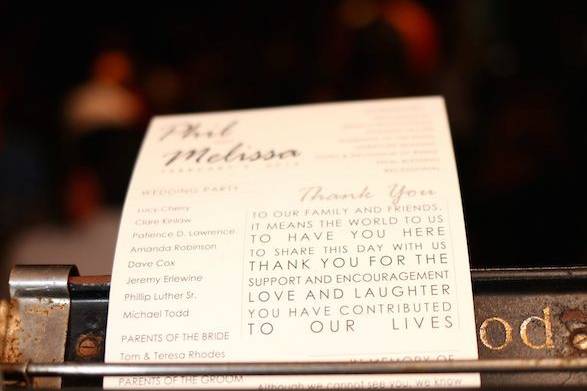 Phil
Melissa
WEDDING PARTY
Lucy Cherry
Clare Kinlaw
Patience D. Lawrence
Amanda Robinson
Dave Cox
Jeremy Erlewine
Phillip Luther Sr.
Michael Todd
PARENTS OF THE BRIDE
Tom & Teresa Rhodes
PARENTS OF THE GROOM
Thank You
TO OUR FAMILY AND FRIENDS,
IT MEANS THE WORLD TO US
TO HAVE YOU HERE
TO SHARE THIS DAY WITH US
THANK YOU FOR THE
SUPPORT AND ENCOURAGEMENT
LOVE AND LAUGHTER
YOU HAVE CONTRIBUTED
TO OUR LIVES
IN MEMORY OF
Although we cannot see you, we know
od